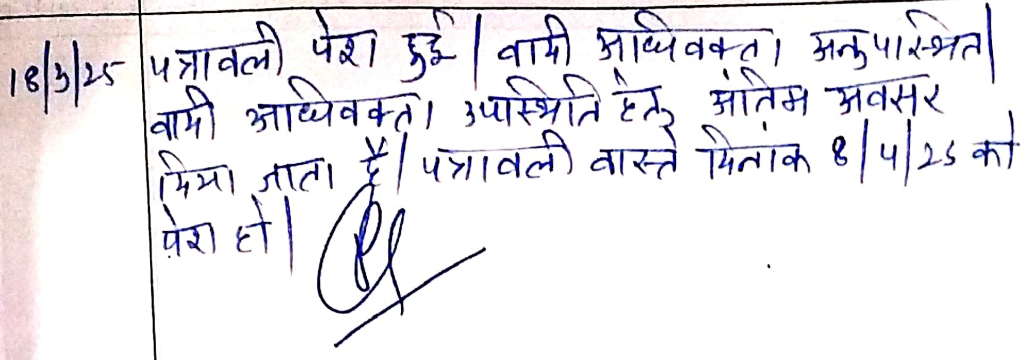 18/3/25 पत्रावली पेश हुई। वादी अधिवक्ता अनुपस्थित।
वादी अधिवक्ता उपस्थिति हेतु अंतिम अवसर
दिया जाता है। पत्रावली वास्ते दिनांक 8/4/25 को
पेश हो।